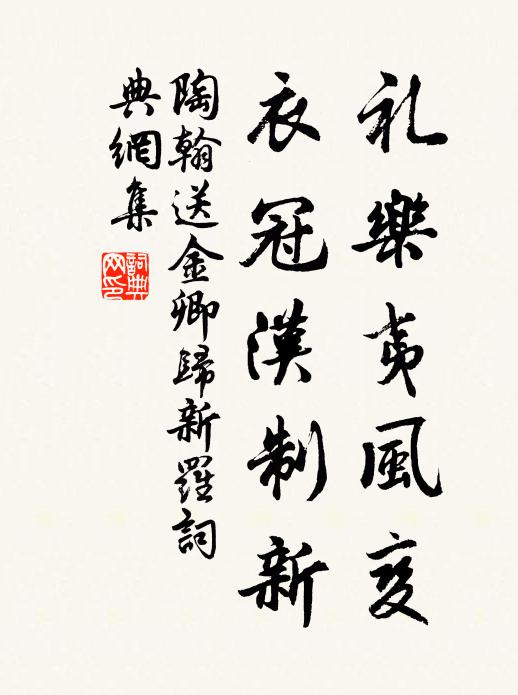 礼樂夷風變
衣冠漢制新
陶翰送金卿歸新羅詞
典網集
詞典
网印